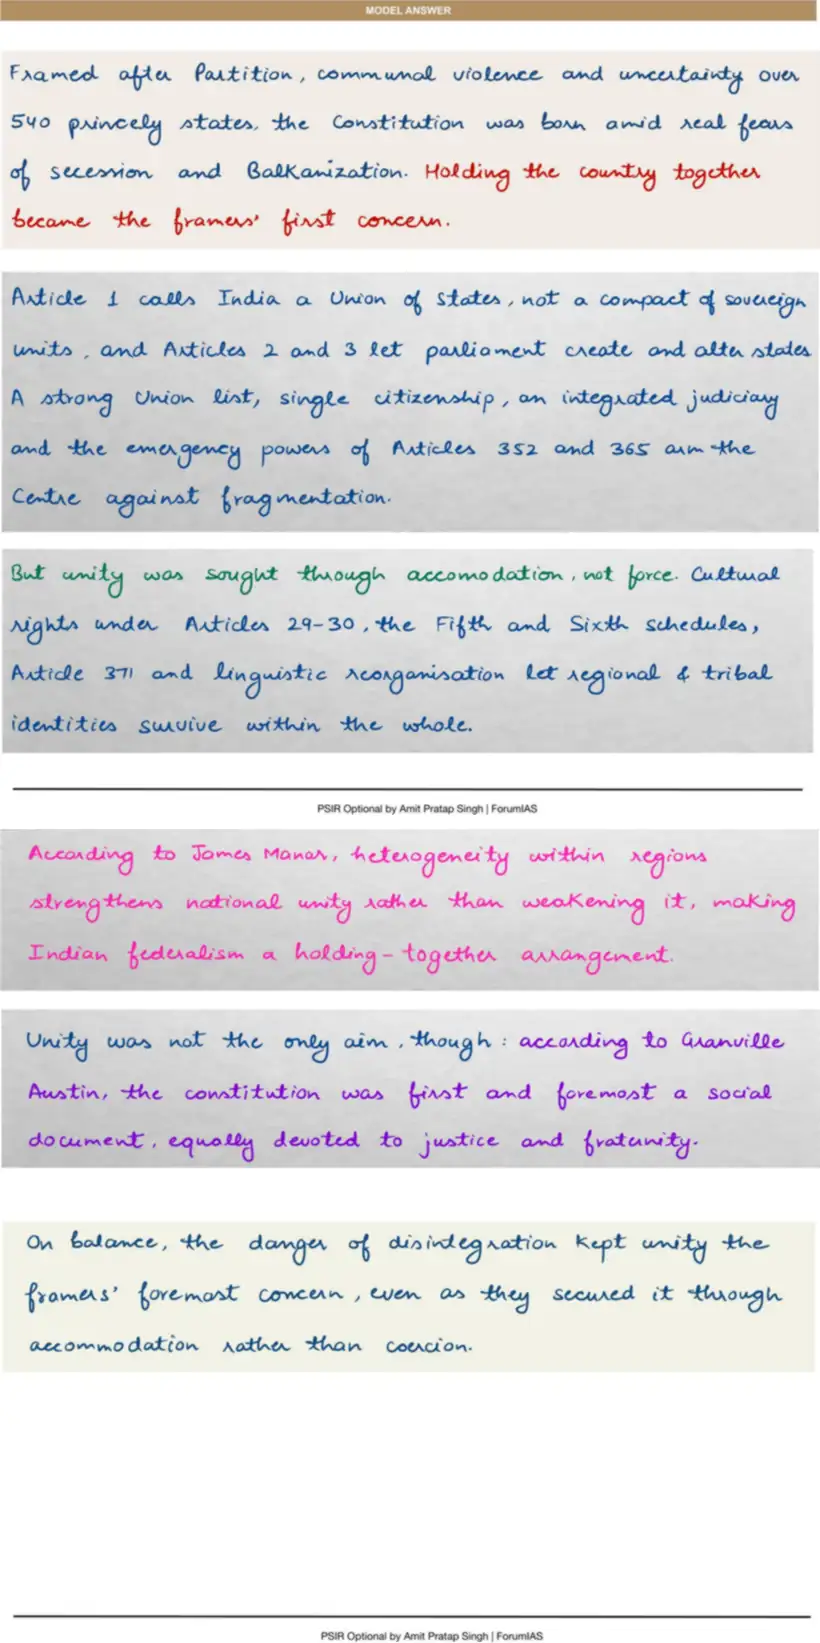 MODEL ANSWER
Framed after Partition, communal violence and uncertainty over
540 princely states, the Constitution was born amid real fears
of secession and Balkanization. Holding the country together
became the framers' first concern.
Article 1 calls India a Union of states, not a compact of sovereign
units, and Articles 2 and 3 let parliament create and alter states
A strong Union list, single citizenship, an integrated judiciary
and the emergency powers of Articles 352 and 365 arm the
Centre against fragmentation.
But unity was sought through accomodation, not force. Cultural
rights under Articles 29-30, the Fifth and Sixth schedules,
Article 371 and linguistic reorganisation let regional & tribal
identities survive within the whole.
PSIR Optional by Amit Pratap Singh | ForumIAS
According to James Manar, heterogeneity within regions
strengthens national unity rather than weakening it, making
Indian federalism a holding-together arrangement.
Unity was not the only aim, though: according to Granville
Austin, the constitution was first and foremost a social
document, equally devoted to justice and fraternity.
On balance, the danger of disintegration kept unity the
framers' foremost concern, even as they secured it through
accommodation rather than coercion.
PSIR Optional by Amit Pratap Singh | ForumIAS